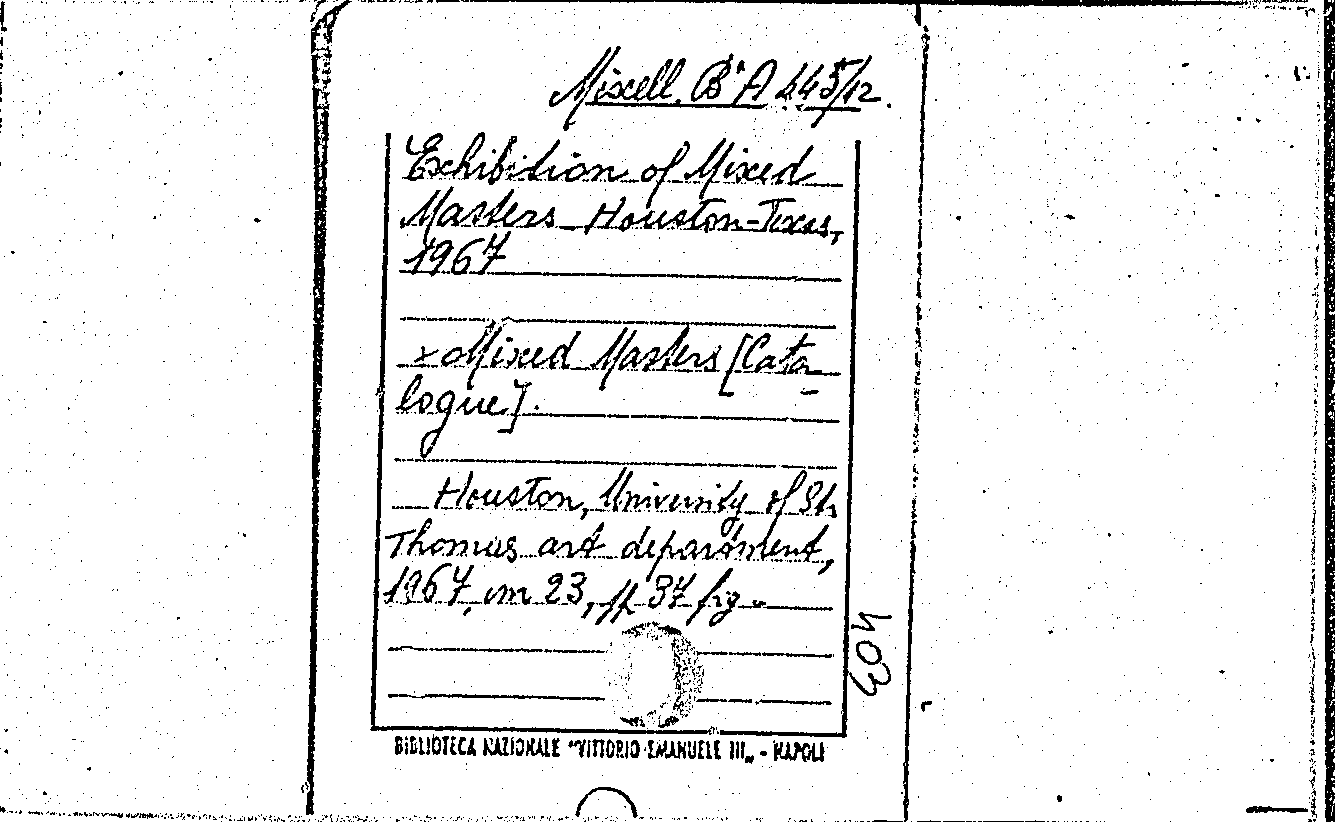 Miscell. Ba A 445/12.
Exhibition of Mixed
Masters Houston-Texas,
1967
x Mixed Masters [Cata-
logue].
Houston, University of St.
Thomas art department,
1967, cm 23, pp 37 fig.
604
BIBLIOTECA NAZIONALE "VITTORIO EMANUELE III„ - NAPOLI